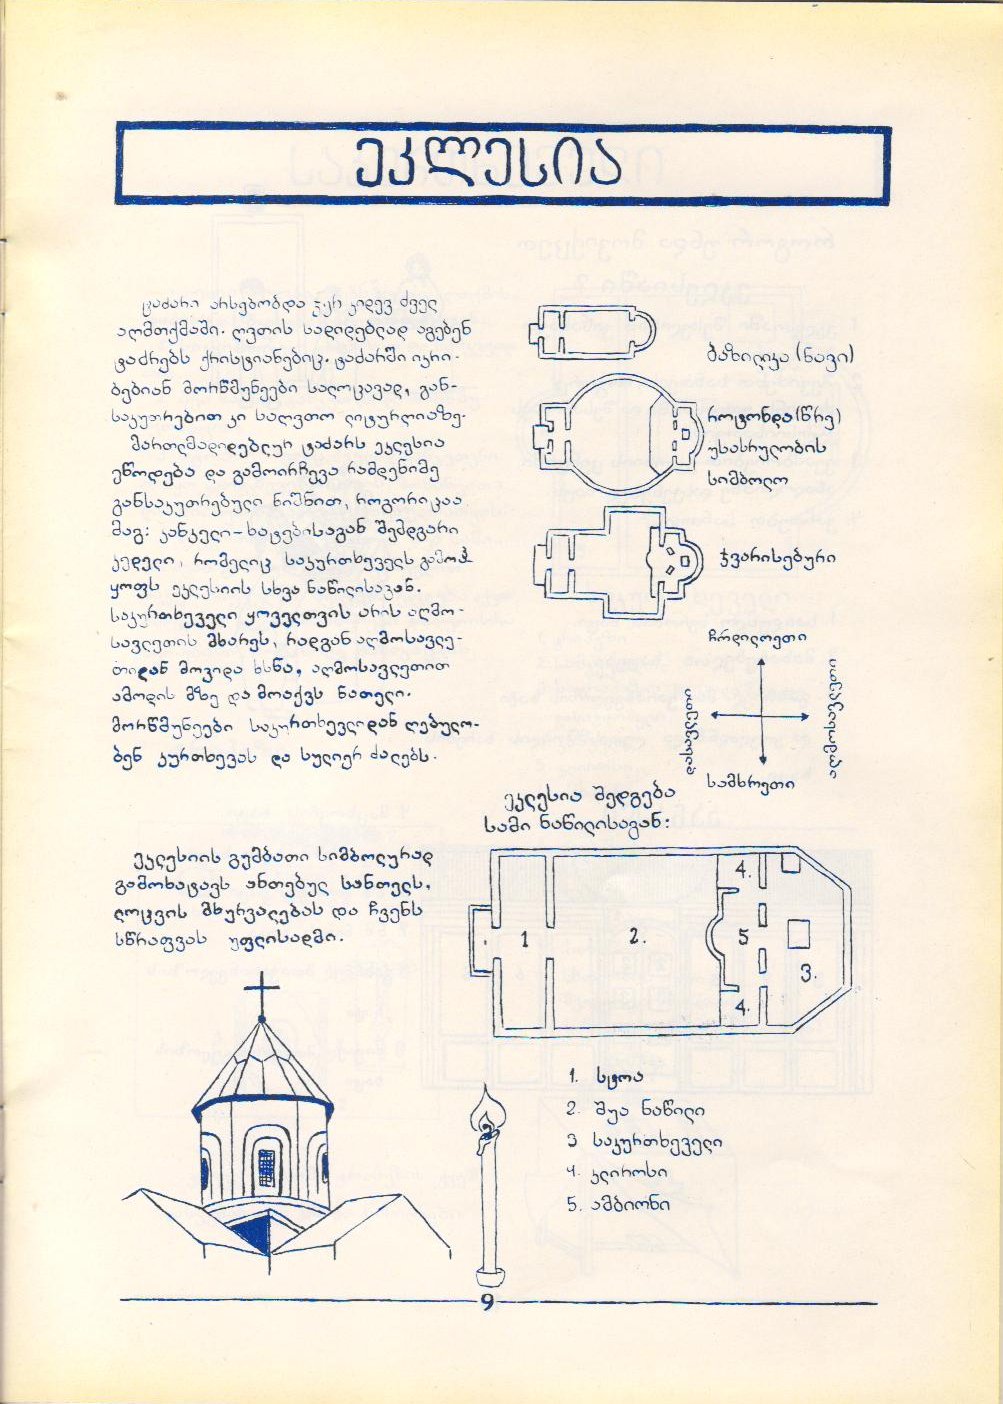 ეკლესია
ტაძარი არსებობდა ჯერ კიდევ ძველ
აღმთქმაში. ღვთის სადიდებლად აგებენ
ტაძრებს ქრისტიანებიც. ტაძარში იკრი-
ბებიან მორწმუნეები სალოცავად, გან-
საკუთრებით კი საღვთო ლიტურღიაზე.
მართლმადიდებლურ ტაძარს ეკლესია
ეწოდება და გამოირჩევა რამდენიმე
განსაკუთრებული ნიშნით, როგორიცაა
მაგ: კანკელი – ხატებისაგან შემდგარი
კედელი, რომელიც საკურთხეველს გამოჰ
ყოფს ეკლესიის სხვა ნაწილისაგან.
საკურთხეველი ყოველთვის არის აღმო-
სავლეთის მხარეს, რადგან აღმოსავლე-
თიდან მოვიდა ხსნა, აღმოსავლეთით
ამოდის მზე და მოაქვს ნათელი.
მორწმუნეები საკურთხევლიდან ღებულო-
ბენ კურთხევას და სულიერ ძალებს.
ეკლესიის გუმბათი სიმბოლურად
გამოხატავს ანთებულ სანთელს,
ლოცვის მხურვალებას და ჩვენს
სწრაფვას უფლისადმი.
ბაზილიკა (ნავი)
როტონდა (წრე)
უსასრულობის
სიმბოლო
ჯვარისებური
ჩრდილოეთი
დასავლეთი
აღმოსავლეთი
სამხრეთი
ეკლესია შედგება
სამი ნაწილისაგან:
1 2. 3. 4. 4. 5
1. სტოა
2. შუა ნაწილი
3 საკურთხეველი
4. კლიროსი
5. ამბიონი
9